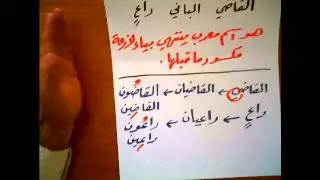 القاضي الباني راعٍ
هو اسم معرب ينتهي بياء لازمة
مكسور ما قبلها.
القاضي ← القاضيان ← القاضُون
القاضِين
راعٍ ← راعيان ← راعُون
راعِين